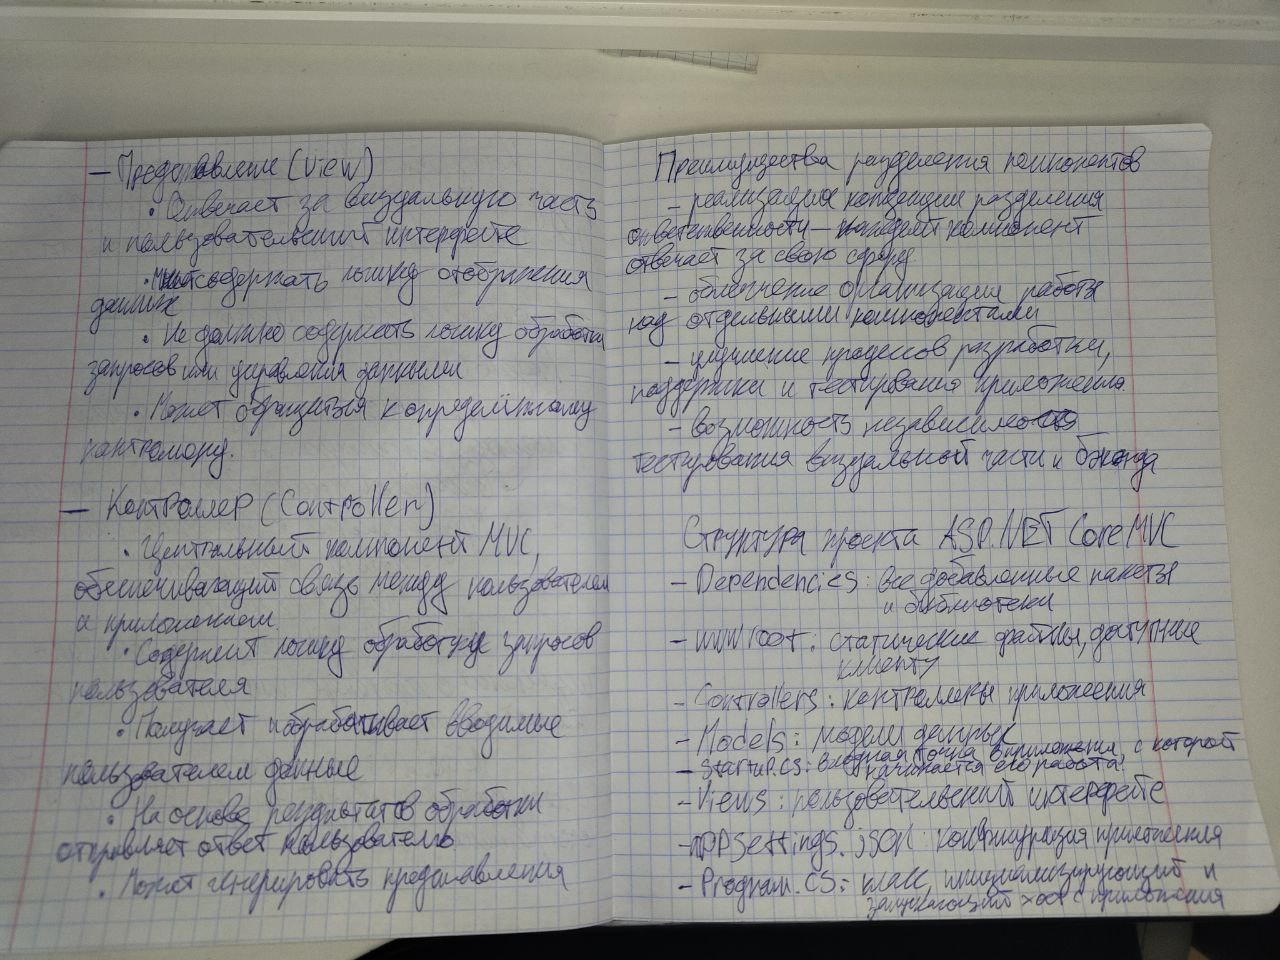 — Представление (View)
• Отвечает за визуальную часть
и пользовательский интерфейс
• Может содержать логику отображения
данных
• Не должно содержать логику обработки
запросов или управления данными
• Может обращаться к определённому
контроллеру.
— Контроллер (Controller)
• Центральный компонент MVC,
обеспечивающий связь между пользователем
и приложением
• Содержит логику обработки запросов
пользователя
• Получает и обрабатывает вводимые
пользователем данные
• На основе результатов обработки
отправляет ответ пользователю
• Может генерировать представления
Преимущества разделения компонентов
- реализация концепции разделения
ответственности — каждый компонент
отвечает за свою сферу.
- облегчение организации работы
над отдельными компонентами
- улучшение процессов разработки,
поддержки и тестирования приложения.
- возможность независимого
тестирования визуальной части и бэкенда
Структура проекта ASP.NET Core MVC
- Dependencies: все добавленные пакеты
и библиотеки
- wwwroot: статические файлы, доступные
клиенту
- Controllers: контроллеры приложения
- Models: модели данных
- Startup.cs: входная точка в приложения, с которой
начинается его работа!
- Views: пользовательский интерфейс
- appsettings.json: конфигурация приложения
- Program.cs: класс, инициализирующий и
запускающий хост с приложения